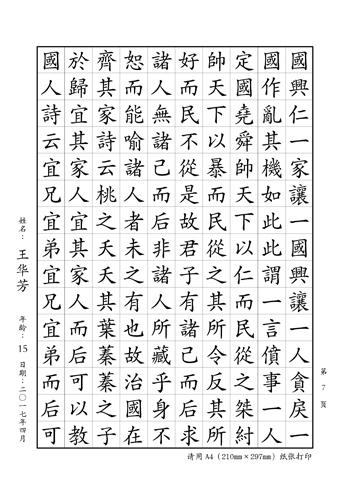 國興仁一家讓一國興讓一人貪戾一
國作亂其機如此此謂一言僨事一人
定國堯舜帥天下以仁而民從之桀紂
帥天下以暴而民從之其所令反其所
好而民不從是故君子有諸己而后求
諸人無諸己而后非諸人所藏乎身不
恕而能喻諸人者未之有也故治國在
齊其家詩云桃之夭夭其葉蓁蓁之子
於歸宜其家人宜其家人而后可以教
國人詩云宜兄宜弟宜兄宜弟而后可
姓名：王华芳 年龄：15 日期：二〇一七年四月
第 7 页
请用 A4（210mm×297mm）纸张打印